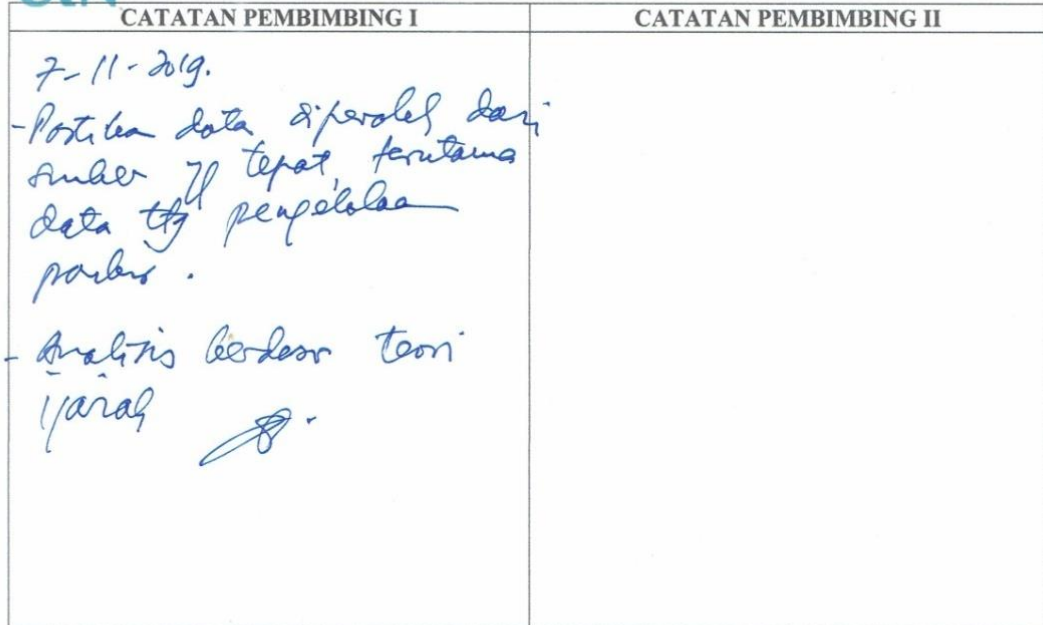 CATATAN PEMBIMBING I
CATATAN PEMBIMBING II
7-11-2019.
- Pastikan data diperoleh dari
sumber yg tepat, terutama
data ttg pengelolaan
parkir.
- Analisis berdasar teori
ijarah